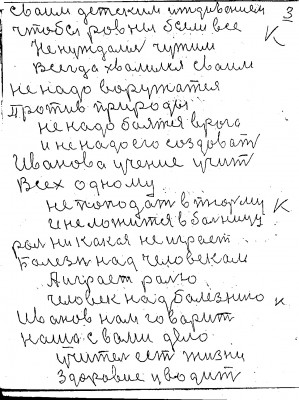 3
своим детским иждивением
чтобы равны были все
К
Не нуждали чужим
Всегда хвалился своим
не надо воружатся
Против природы
не надо боятся врага
и не надо его создоват
Иванова учение учит
Всех одному
не поподат в тюрму
и не ложится в болницу К
рол ни какая не играет
Болезн над человекам
Аиграет ралю
Человек над балезнию к
Иванов нам говарит
наше с вами дело
учител ест жизни
Здоровие уводит